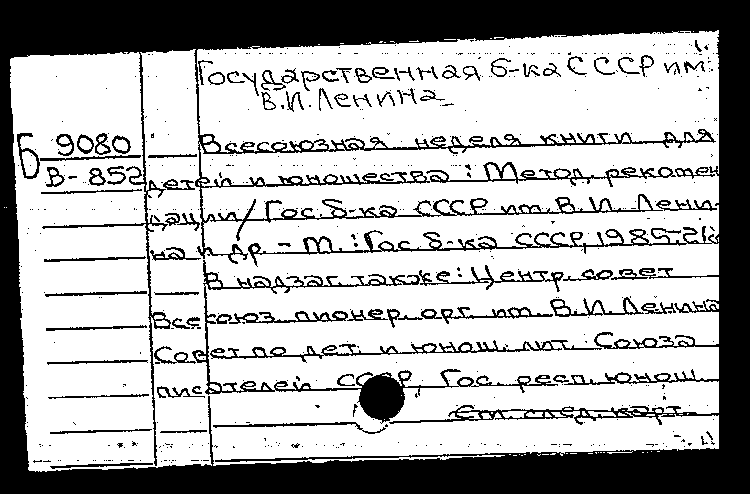 1.
Государственная б-ка СССР им.
В.И.Ленина
Б 9080
В-852
Всесоюзная неделя книги для
детей и юношества : Метод. рекомен
дации / Гос. б-ка СССР им. В. И. Лени-
на и др. - М. : Гос. б-ка СССР, 1985.-21с
В надзаг. также : Центр. совет
Всесоюз. пионер. орг. им. В.И. Ленина
Совет по дет. и юнош. лит. Союза
писателей СССР, Гос. респ. юнош.
См. след. карт.